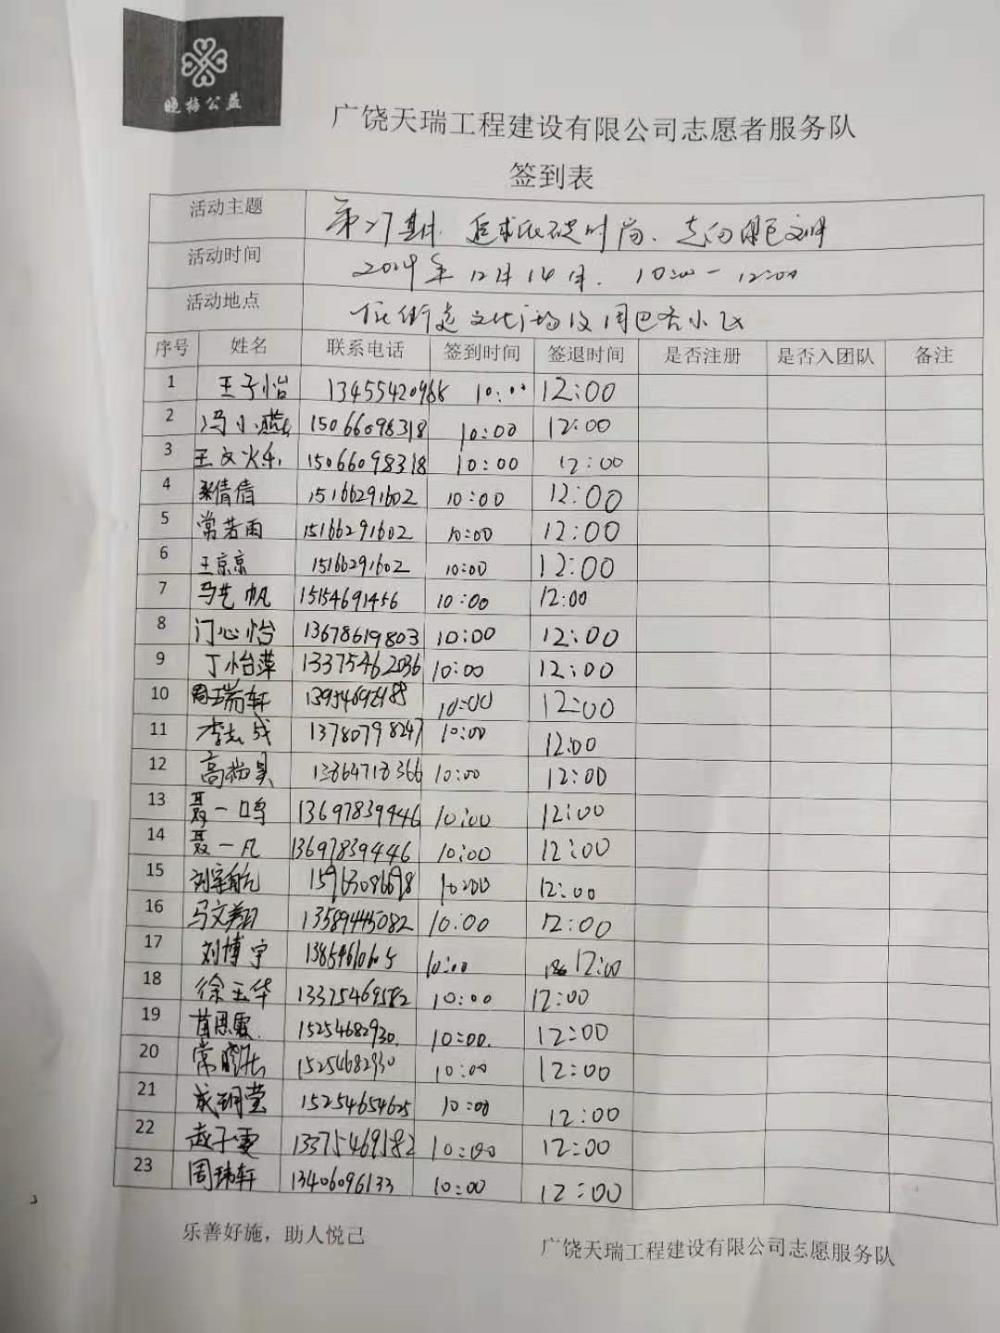 晚梅公益
广饶天瑞工程建设有限公司志愿者服务队
签到表
活动主题 第27期 追求低碳时尚、走向绿色文明
活动时间 2024年12月14日. 10:00-12:00
活动地点 街道文化广场及周巴舍小区
序号 姓名 联系电话 签到时间 签退时间 是否注册 是否入团队 备注
1 王子怡 13455420968 10:00 12:00
2 冯小燕 15066098318 10:00 12:00
3 王文火 15066098318 10:00 12:00
4 倩倩 15166291602 10:00 12:00
5 常若雨 15166291602 10:00 12:00
6 王京京 15166291602 10:00 12:00
7 马艺帆 15154691456 10:00 12:00
8 门心怡 13678619803 10:00 12:00
9 丁怡萍 13375462036 10:00 12:00
10 周瑞轩 10:00 12:00
11 李志成 13780798247 10:00 12:00
12 高 13864718366 10:00 12:00
13 聂一鸣 13697839446 10:00 12:00
14 聂一凡 13697839446 10:00 12:00
15 刘宇航 15963086698 10:00 12:00
16 马文翔 13589445082 10:00 12:00
17 刘博宇 10:00 12:00
18 徐玉华 13375469582 10:00 12:00
19 思 15254682930. 10:00. 12:00
20 常 15254682930 10:00 12:00
21 成玥莹 15254654625 10:00 12:00
22 赵子雯 13375469582 10:00 12:00
23 周玮轩 13406096133 10:00 12:00
乐善好施，助人悦己
广饶天瑞工程建设有限公司志愿服务队